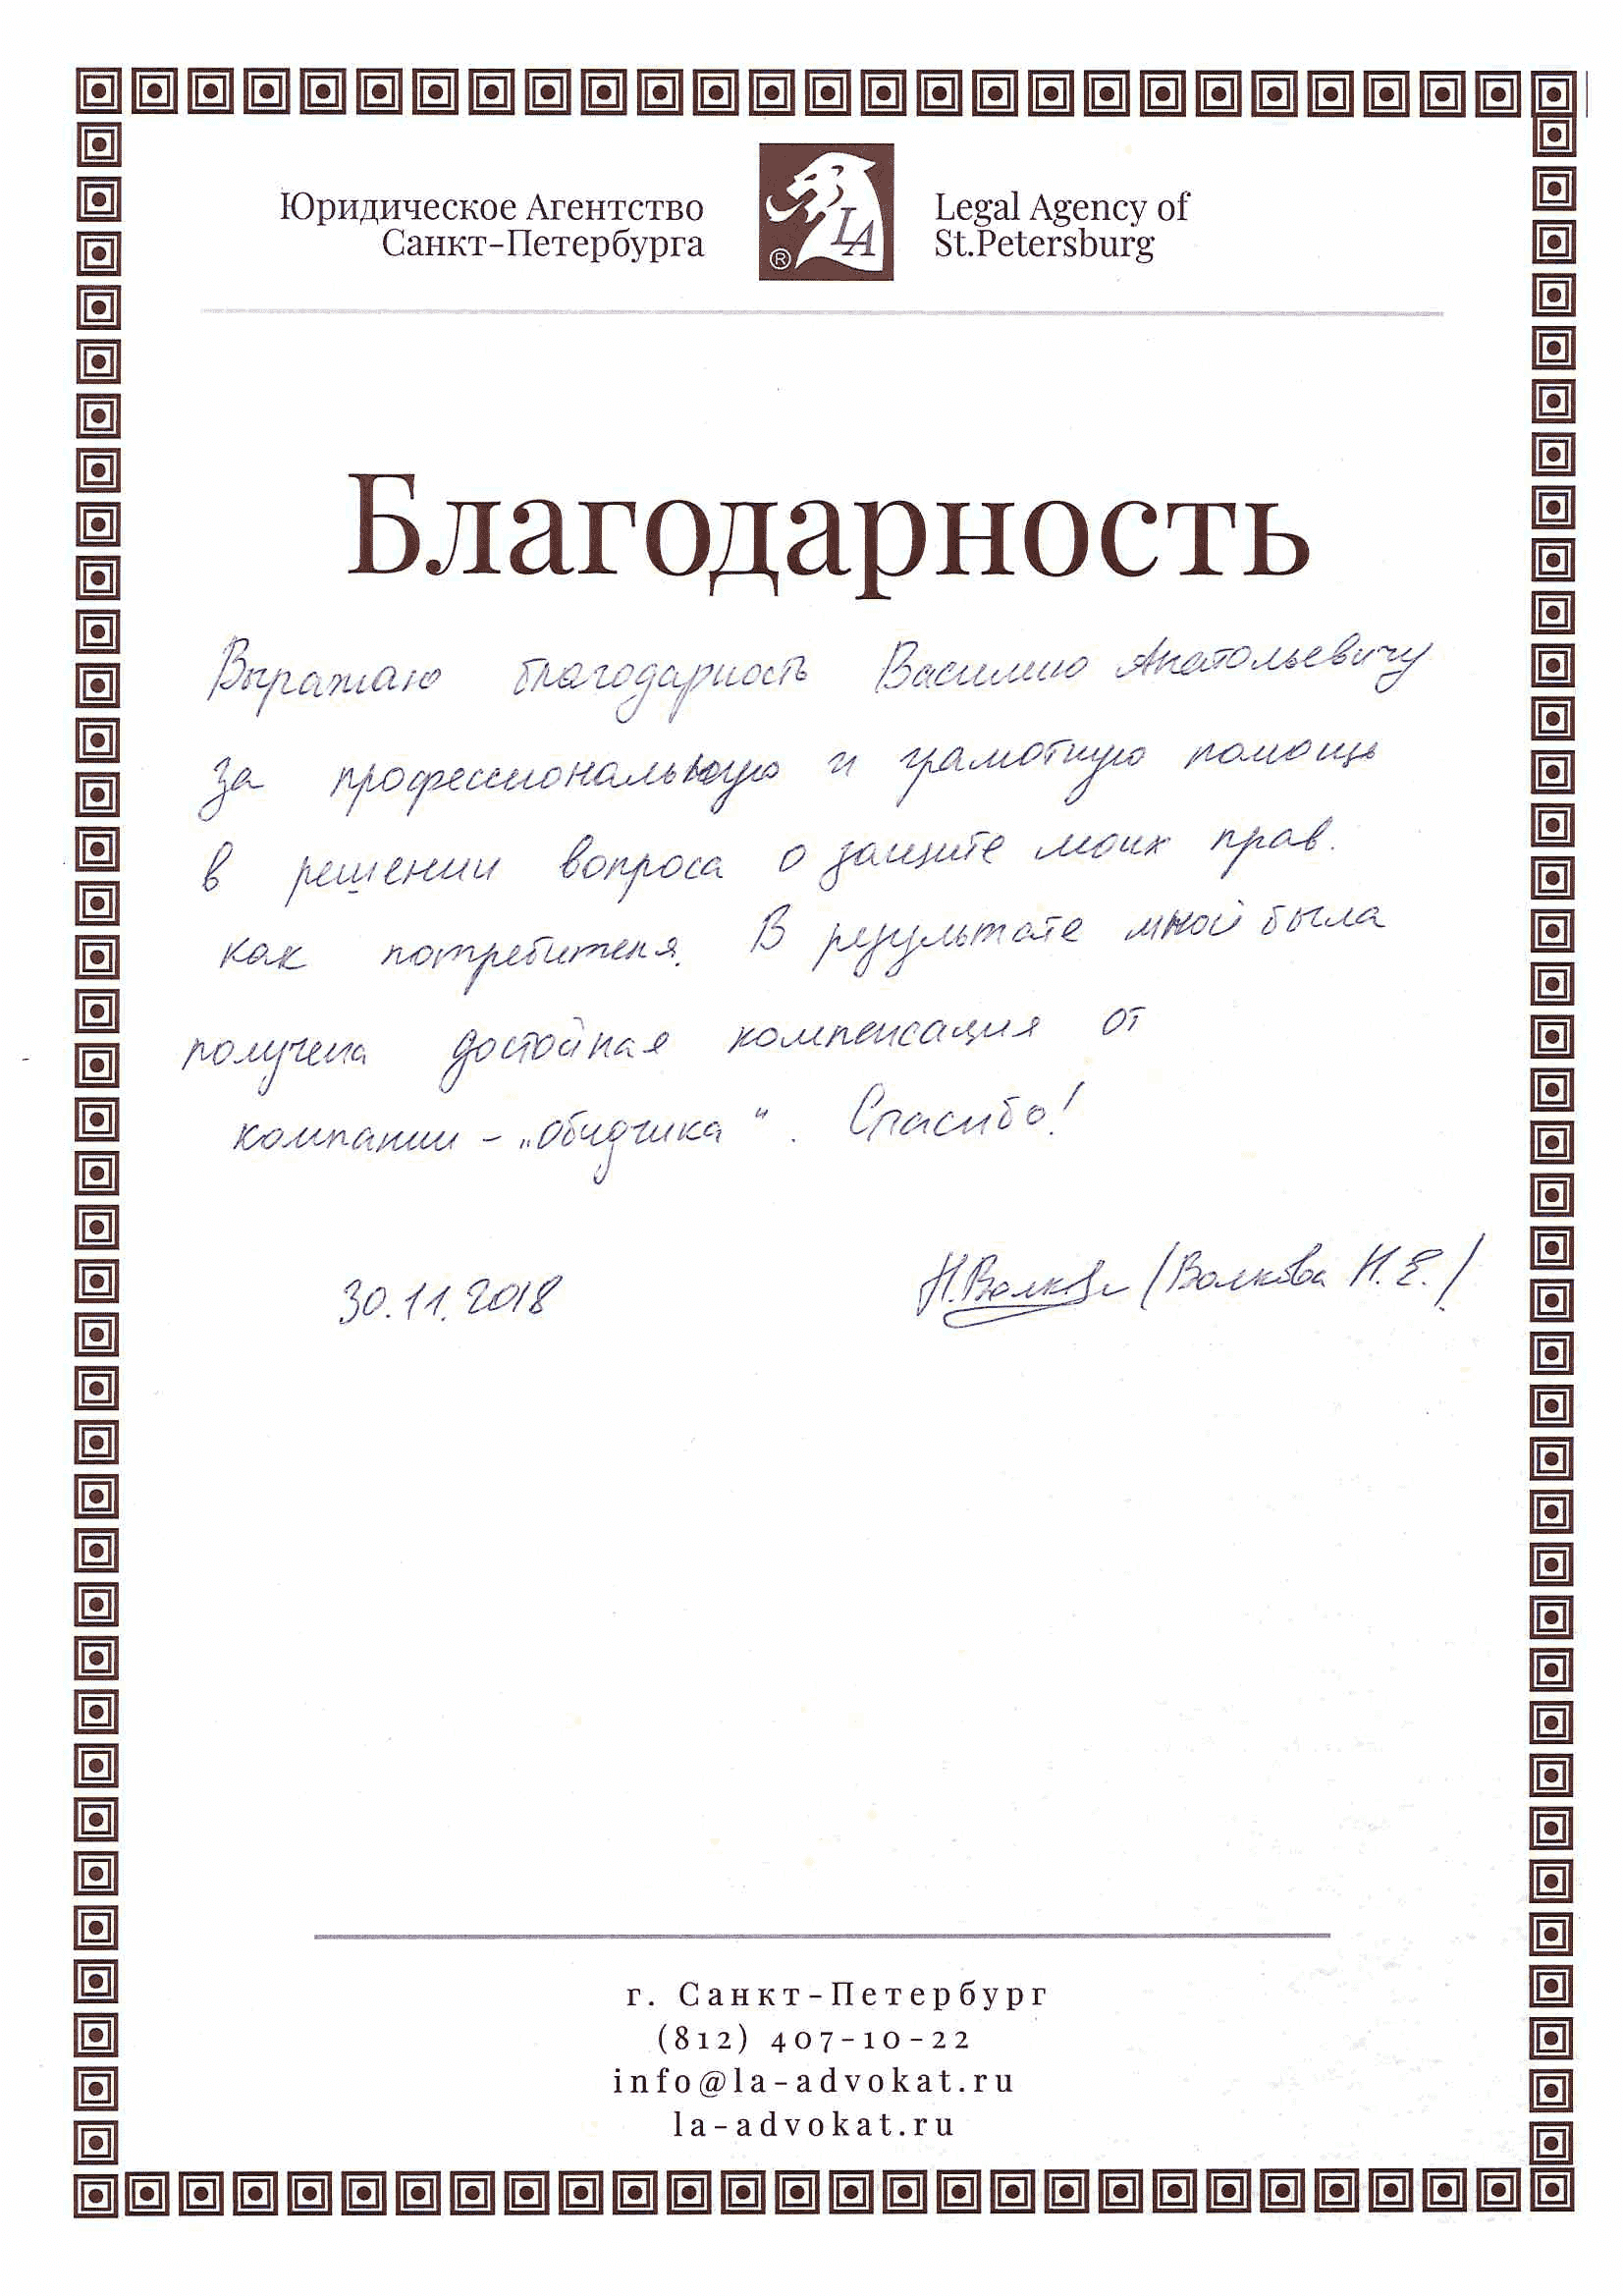 Юридическое Агентство
Санкт-Петербурга
LA
®
Legal Agency of
St.Petersburg
Благодарность
Выражаю благодарность Василию Анатольевичу
за профессиональную и грамотную помощь
в решении вопроса о защите моих прав.
как потребителя. В результате мной была
получена достойная компенсация от
компании - „обидчика". Спасибо!
30.11.2018
Н.Волкова /Волкова Н.Е./
г. Санкт-Петербург
(812) 407-10-22
info@la-advokat.ru
la-advokat.ru